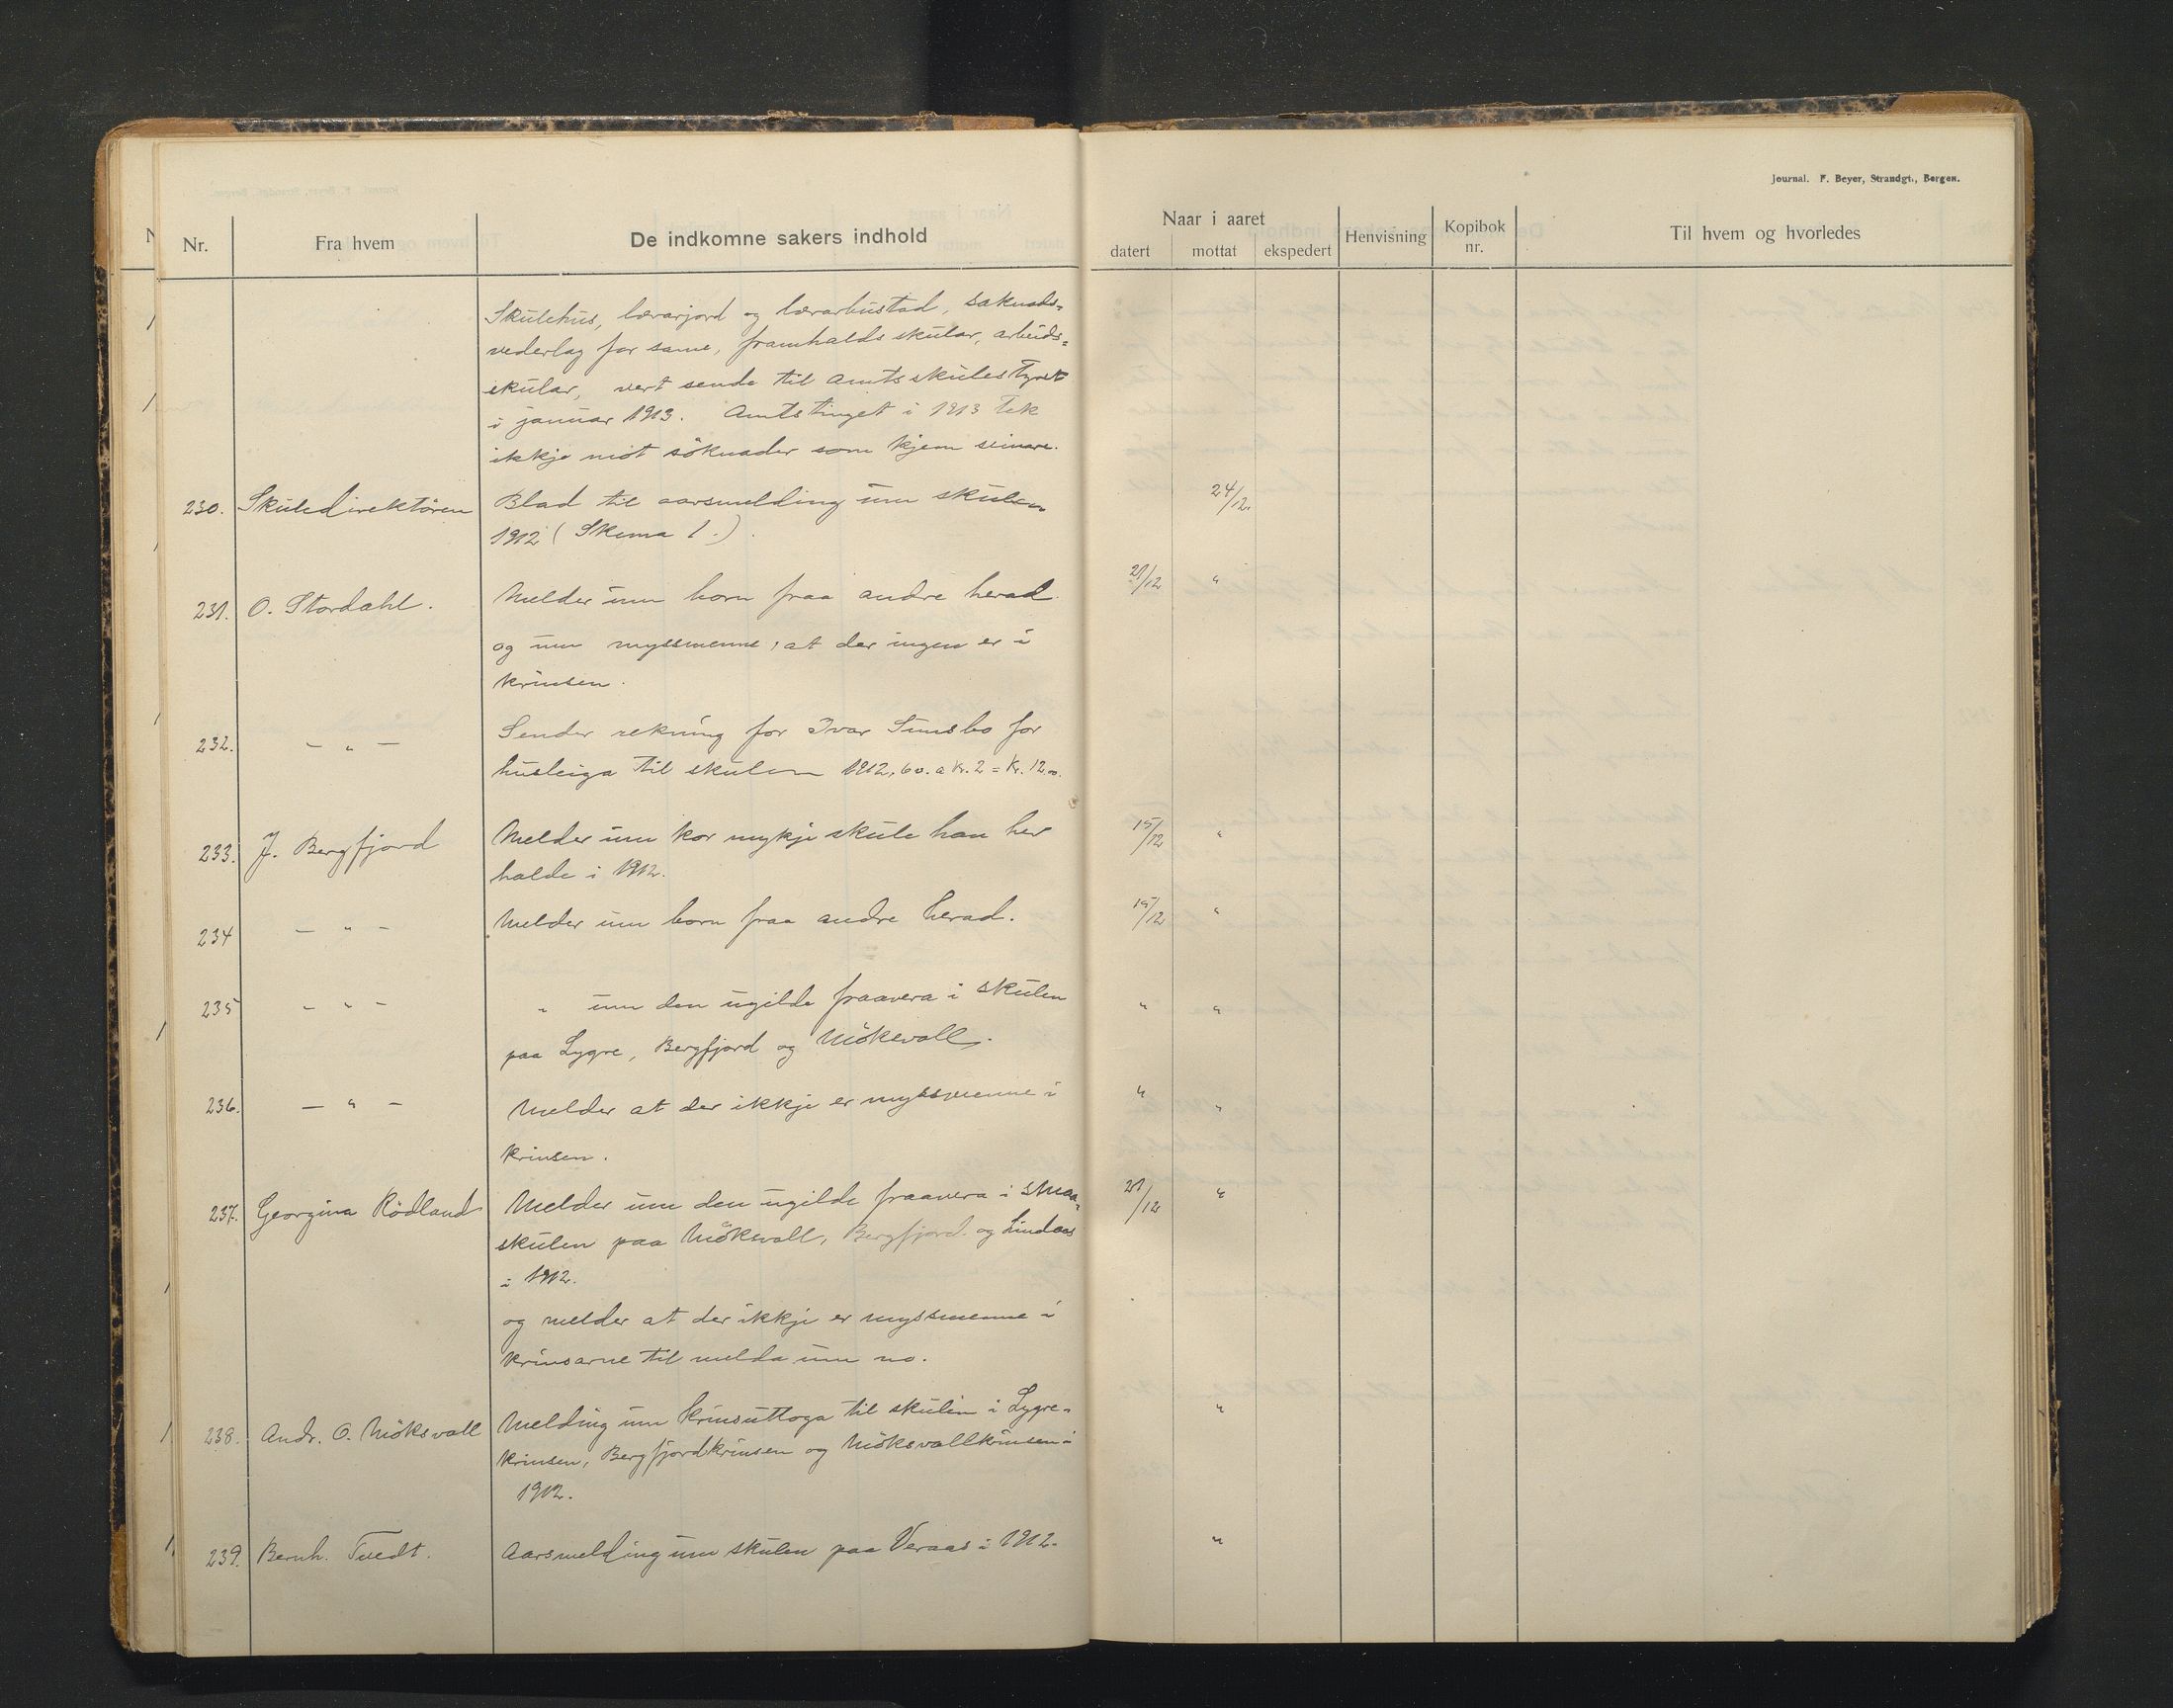 Journal. F. Beyer, Strandgt., Bergen.
Nr. Fra hvem De indkomne sakers indhold Naar i aaret datert mottat ekspedert Henvisning Kopibok nr. Til hvem og hvorledes
Skulehus, lærarjord og lærarbustad, saknads-
vederlag for same, framhaldsskular, arbeids-
skular, vert sende til Amtsskulestyret
i januar 1913. Amtstinget i 1913 tek
ikkje mot söknader som kjem seinare.
230. Skuledirektören Blad til aarsmelding um skulen 24/12.
1912 (Skema 1.).
231. O. Stordahl. Melder um born fraa andre herad 21/12 "
og um myssmenne, at der ingen er i
krinsen.
232. - " - Sender rekning for Ivar for
husleiga til skulen 1912, 60. a Kr. 2 = Kr. 12,00.
233. J. Bergfjord Melder um kor mykje skule han hev 15/12 "
halde i 1912.
234 - " - Melder um born fraa andre herad. 15/12 "
235 - " - " um den ugilde fraavera i skulen " "
paa Lygre, Bergfjord og Möksvall.
236. - " - Melder at der ikkje er myssmenne i " "
krinsen.
237. Georgina Rödland Melder um den ugilde fraavera i smaa- 21/12 "
skulen paa Möksvall, Bergfjord og Lindaas
i 1912.
og melder at der ikkje er myssmenne i
krinsarne til melda um no.
238. Andr. O. Möksvall Melding um krinsuttoga til skulen i Lygre- "
krinsen, Bergfjordkrinsen og Möksvallkrinsen i
1912.
239. Bernh. Tvedt. Aarsmelding um skulen paa Veraas i 1912. "